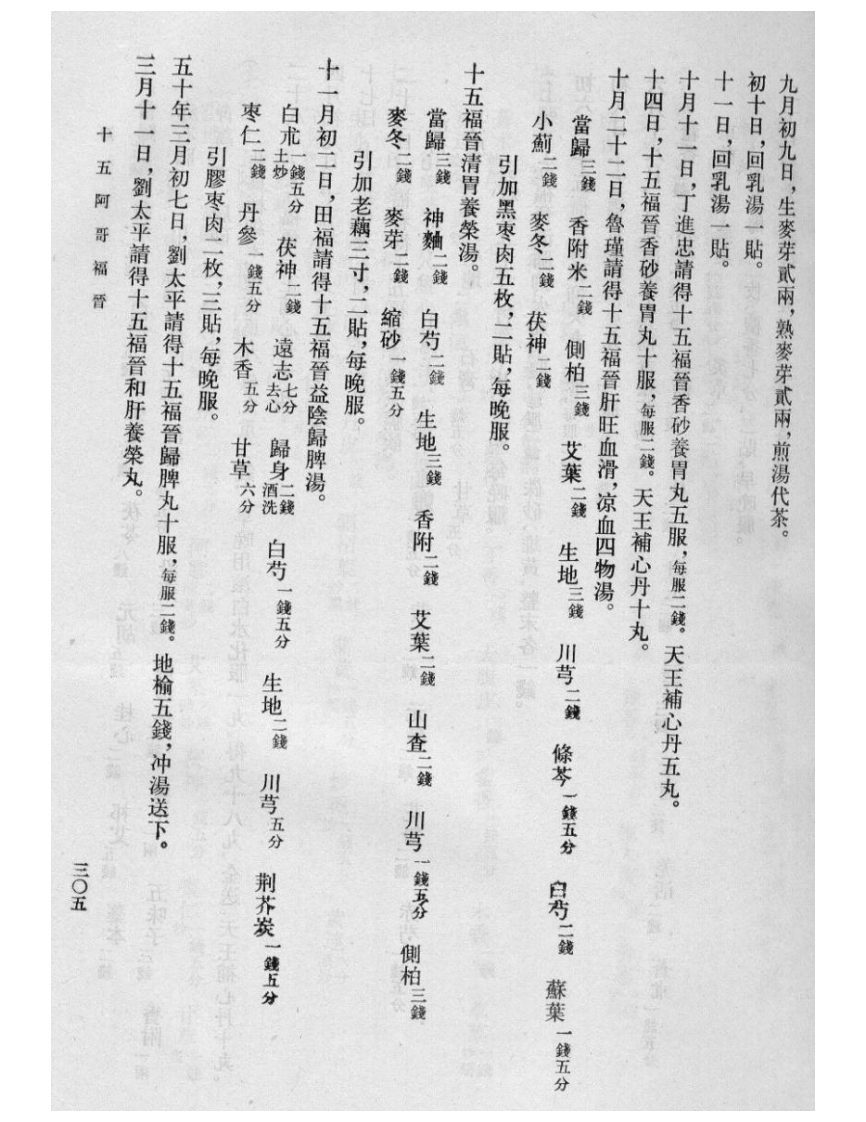 九月初九日，生麥芽貳兩，熟麥芽貳兩，煎湯代茶。
初十日，回乳湯一貼。
十一日，回乳湯一貼。
十月十一日，丁進忠請得十五福晉香砂養胃丸五服，每服二錢。天王補心丹五丸。
十四日，十五福晉香砂養胃丸十服，每服二錢。天王補心丹十丸。
十月二十二日，魯瑾請得十五福晉肝旺血滑，凉血四物湯。
當歸三錢 香附米二錢 側柏三錢 艾葉二錢 生地三錢 川芎二錢 條芩一錢五分 白芍二錢 蘇葉一錢五分
小薊二錢 麥冬二錢 茯神二錢
引加黑枣肉五枚，二貼，每晚服。
十五福晉清胃養榮湯。
當歸三錢 神麯二錢 白芍二錢 生地三錢 香附二錢 艾葉二錢 山查二錢 川芎一錢五分 側柏三錢
麥冬二錢 麥芽二錢 縮砂一錢五分
引加老藕三寸，二貼，每晚服。
十一月初二日，田福請得十五福晉益陰歸脾湯。
白朮一錢五分土炒 茯神二錢 遠志七分去心 歸身二錢酒洗 白芍一錢五分 生地二錢 川芎五分 荆芥炭一錢五分
枣仁二錢 丹參一錢五分 木香五分 甘草六分
引膠枣肉二枚，三貼，每晚服。
五十年三月初七日，劉太平請得十五福晉歸脾丸十服，每服二錢。地榆五錢，冲湯送下。
三月十一日，劉太平請得十五福晉和肝養榮丸。
十五阿哥福晉
三〇五